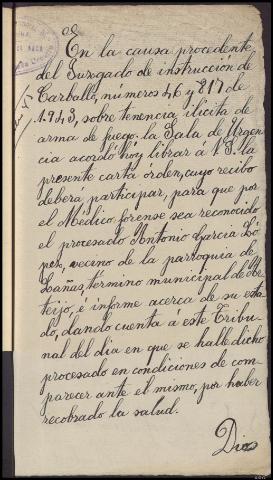 En la causa procedente
del Juzgado de instrucción de
Carballo, números 46 y 817 de
1.943, sobre tenencia ilicita de
arma de fuego. la Sala de Urgen
cia acordó hoy librar á V.S. la
presente carta órden, cuyo recibo
deberá participar, para que por
el Médico forense sea reconocido
el procesado Antonio Garcia Ló
pez, vecino de la parroquia de
Lañas, término municipal de Ar
teijo, é informe acerca de su esta
do, dando cuenta á éste Tribu
nal del dia en que se halle dicho
procesado en condiciones de com
parecer ante el mismo, por haber
recobrado la salud.
Dios